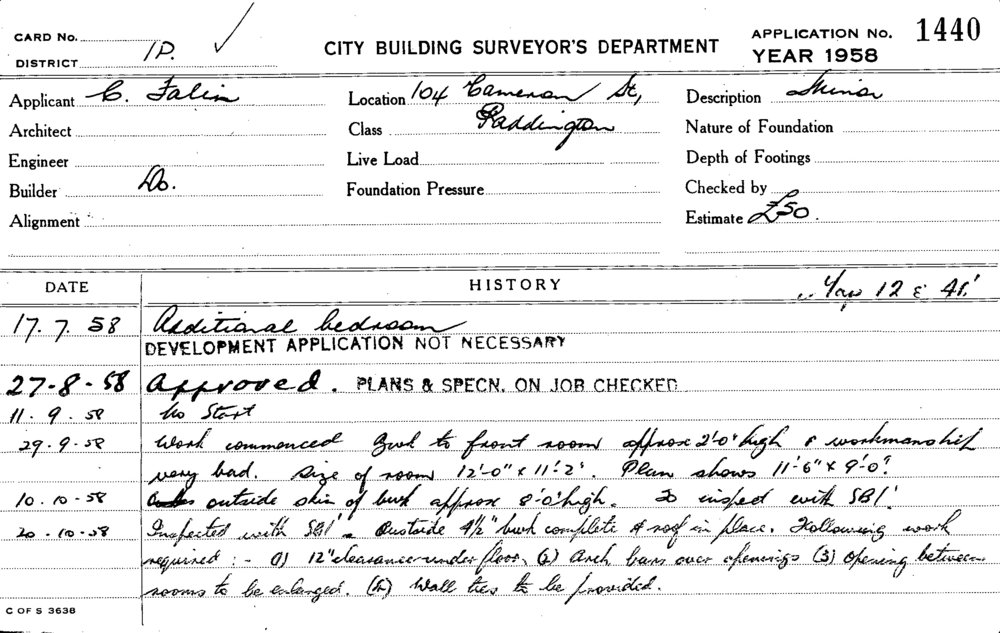 CARD No.
DISTRICT 1P.
CITY BUILDING SURVEYOR'S DEPARTMENT
APPLICATION No. 1440
YEAR 1958
Applicant C. Falin Location 104 Cameron St, Description Minor
Architect Class Paddington Nature of Foundation
Engineer Live Load Depth of Footings
Builder Do. Foundation Pressure Checked by
Alignment Estimate £50.
DATE HISTORY 12 & 41'
17.7.58 Additional bedroom
DEVELOPMENT APPLICATION NOT NECESSARY
27-8-58 Approved. PLANS & SPECN. ON JOB CHECKED
11.9.58 No Start
29.9.58 Work commenced Bwk to front room approx 2'0" high & workmanship
very bad. Size of room 12'-0" x 11'-2". Plan shows 11'-6" x 9'-0".
10.10-58 outside skin of bwk approx 8'-0" high. To inspect with SBI'
20-10-58 Inspected with SBI'. Outside 4½" bwk complete & roof in place. Following work
required :- (1) 12" clearance under floor, (2) Arch bars over openings (3) Opening between
rooms to be enlarged. (4) Wall ties to be provided.
C OF S 3638